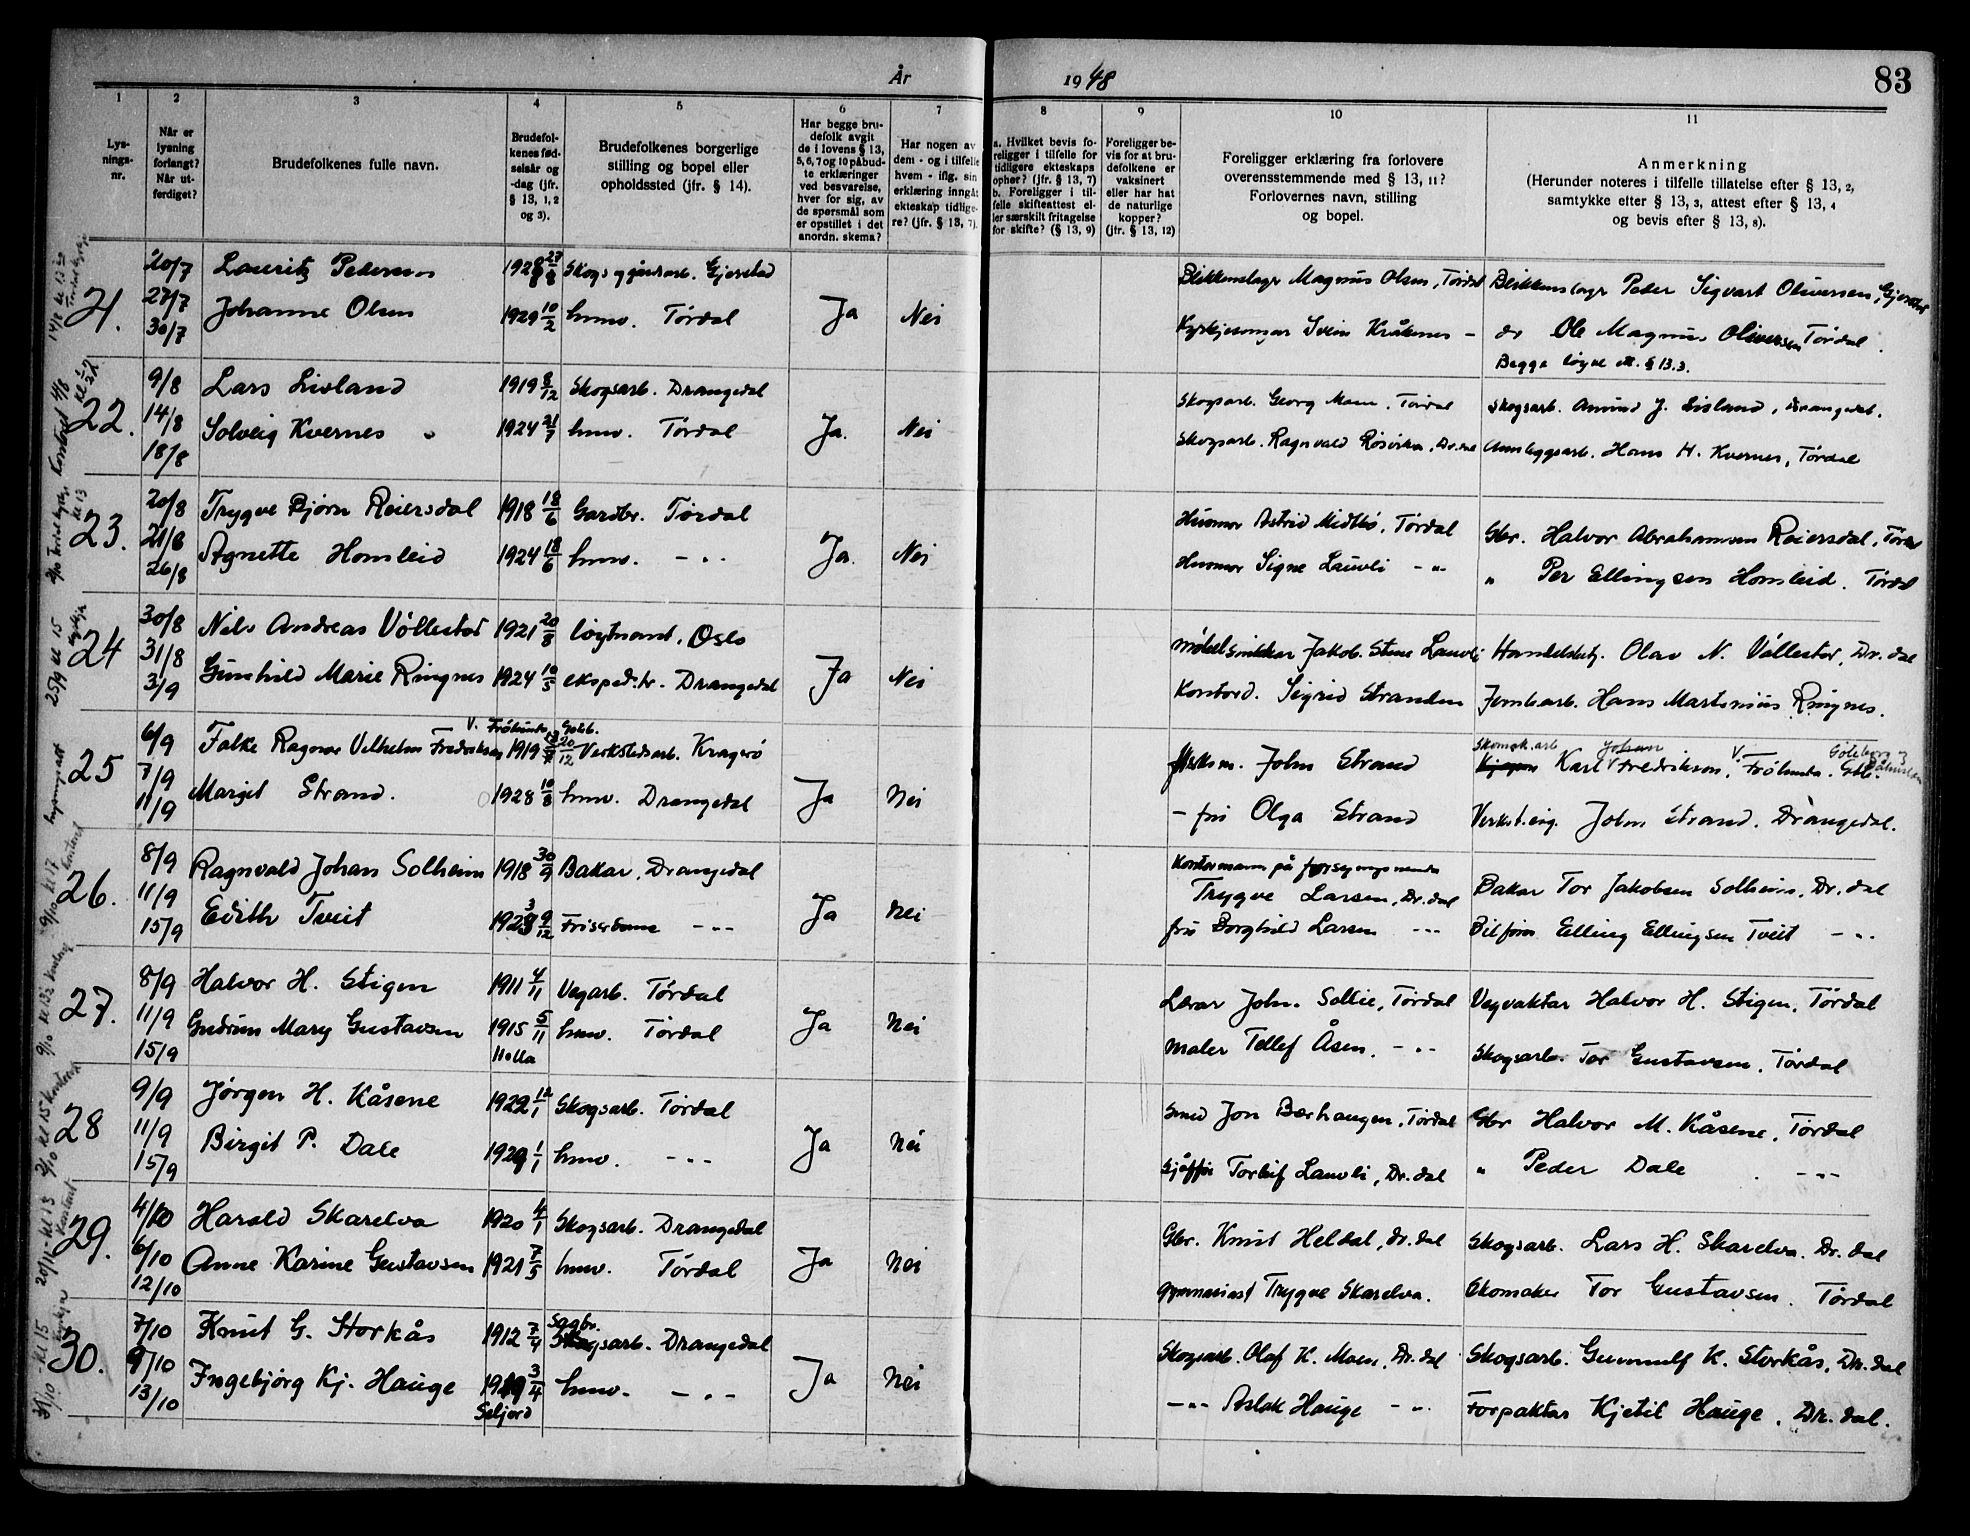 År 1948
83
1 2 3 4 5 6 7 8 9 10 11
Lys-
nings-
nr.
Når er
lysning
forlangt?
Når ut-
ferdiget?
Brudefolkenes fulle navn.
Brudefol-
kenes fød-
selsår og
-dag (jfr.
§ 13, 1, 2
og 3).
Brudefolkenes borgerlige
stilling og bopel eller
opholdssted (jfr. § 14).
Har begge bru-
defolk avgit
de i lovens § 13,
5, 6, 7 og 10 påbud-
te erklæringer
ved besvarelse,
hver for sig, av
de spørsmål som
er opstillet i det
anordn. skema?
Har nogen av
dem - og i tilfelle
hvem - iflg. sin
erklæring inngåt
ekteskap tidlige-
re? (jfr. § 13, 7).
a. Hvilket bevis fo-
religger i tilfelle for
tidligere ekteskaps
opher? (jfr. § 13, 7)
b. Foreligger i til-
felle skifteattest el-
ler særskilt fritagelse
for skifte? (§ 13, 9)
Foreligger be-
vis for at bru-
defolkene er
vaksinert
eller har hat
de naturlige
kopper?
(jfr. § 13, 12)
Foreligger erklæring fra forlovere
overensstemmende med § 13, 11?
Forlovernes navn, stilling
og bopel.
Anmerkning
(Herunder noteres i tilfelle tillatelse efter § 13, 2,
samtykke efter § 13, 3, attest efter § 13, 4
og bevis efter § 13, 8).
21. 20/7 Lauritz Pedersen 1928 Skogs og gårdsarb. Gjerstad Blikkenslagr Magnus Olsen, Tørdal Blikkenslagr Peder Sigvart Oliversen, Gjerstad
27/7 Johanne Olsen 1929 10/2 hmv. Tørdal Ja Nei Kyrkjesongar Svein Kråkenes - do Ole Magnus Oliversen Tørdal.
30/7 Begge løyve
§ 13.3.
22. 9/8 Lars Lisland 1919 8/12 Skogsarb. Drangedal Skogsarb. Georg Moen, Tørdal Skogsarb. Anund J. Lisland, Drangedal.
14/8 Solveig Kvernes 1924 21/7 hmv. Tørdal Ja. Nei Skogsarb. Ragnvald Røsvika, Dr.dal Annleggsarb. Hans H. Kvernes, Tørdal
18/8
23. 20/8 Trygve Bjørn Reiersdal 1918 18/6 Gardbr. Tørdal Husmor Astrid Midtbø, Tørdal Gbr. Halvor Abrahamsen Reiersdal, Tørdal
21/8 Agnette Homleid 1924 18/6 hmv. - " - Ja. Nei Husmor Signe Lauvli - " - " Per Ellingsen Homleid. Tørdal
26/8
24 30/8 Nils Andreas Vøllestad 1921 20/8 løytnant, Oslo Møbelsnikkar Jakob Stene Lauvli Handelsbetj. Olav N. Vøllestad, Dr.dal
31/8 Gunhild Marie Ringnes 1924 10/5 eksped.tr. Drangedal Ja Nei Kontord. Sigrid Stranden Jernbarb. Hans Martinius Ringnes.
3/9
25 6/9 Falke Ragnar Vilhelm Fredriksson 1919 Verkstedarb. Kragerø John Strand Karl Johan Fredrikson, V. Frølunda.
7/9 Margit Strand. 1928 10/8 hmv. Drangedal Ja Nei - fru Olga Strand Verkst.eig. John Strand. Drangedal.
11/9
26. 8/9 Ragnvald Johan Solheim 1918 30/9 Bakar, Drangedal Kontormann på forsyningsnemda
Trygve Larsen, Dr.dal Bakar Tor Jakobsen Solheim, Dr.dal
11/9 Edith Tveit 1923 9/12 Friserdame - " - Ja Nei fru Borghild Larsen - " - Bilfører Elling Ellingsen Tveit - " -
15/9
27. 8/9 Halvor H. Stigen 1911 4/11 Vegarb. Tørdal Lærar John Sollie, Tørdal Vegvaktar Halvor H. Stigen, Tørdal
11/9 Gudrun Mary Gustavsen 1915 5/11 hmv. Tørdal Ja Nei Maler Tellef Åsen. - " - Skogsarb. Tor Gustavsen, Tørdal
15/9 Holla
28 9/9 Jørgen H. Kåsene 1922 12/1 Skogsarb. Tørdal Smed Jon Bærhaugen, Tørdal Gbr Halvor M. Kåsene, Tørdal
11/9 Birgit P. Dale 1929 1/1 hmv. - " - Ja Nei Sjåfør Torleif Lauvli, Dr.dal " Peder Dale - " -
15/9
29. 4/10 Harald Skarelva 1920 4/1 Skogsarb. Drangedal Gbr. Knut Heldal, Dr.dal Skogsarb. Lars H. Skarelva. Dr.dal
6/10 Anne Karine Gustavsen 1921 7/5 hmv. Tørdal Ja Nei gymnasiast Trygve Skarelva. Skomaker Tor Gustavsen. Tørdal
12/10
30. 7/10 Knut G. Storkås 1912 7/4 Sagbr. Drangedal Skogsarb. Olaf K. Moen, Dr.dal Skogsarb. Gunnulf K. Storkås, Dr.dal
9/10 Ingebjørg Kj. Hauge 3/4 hmv. - " - Ja Nei - " - Aslak Hauge - " - Forpaktar Kjetil Hauge, Dr.dal.
13/10 Seljord